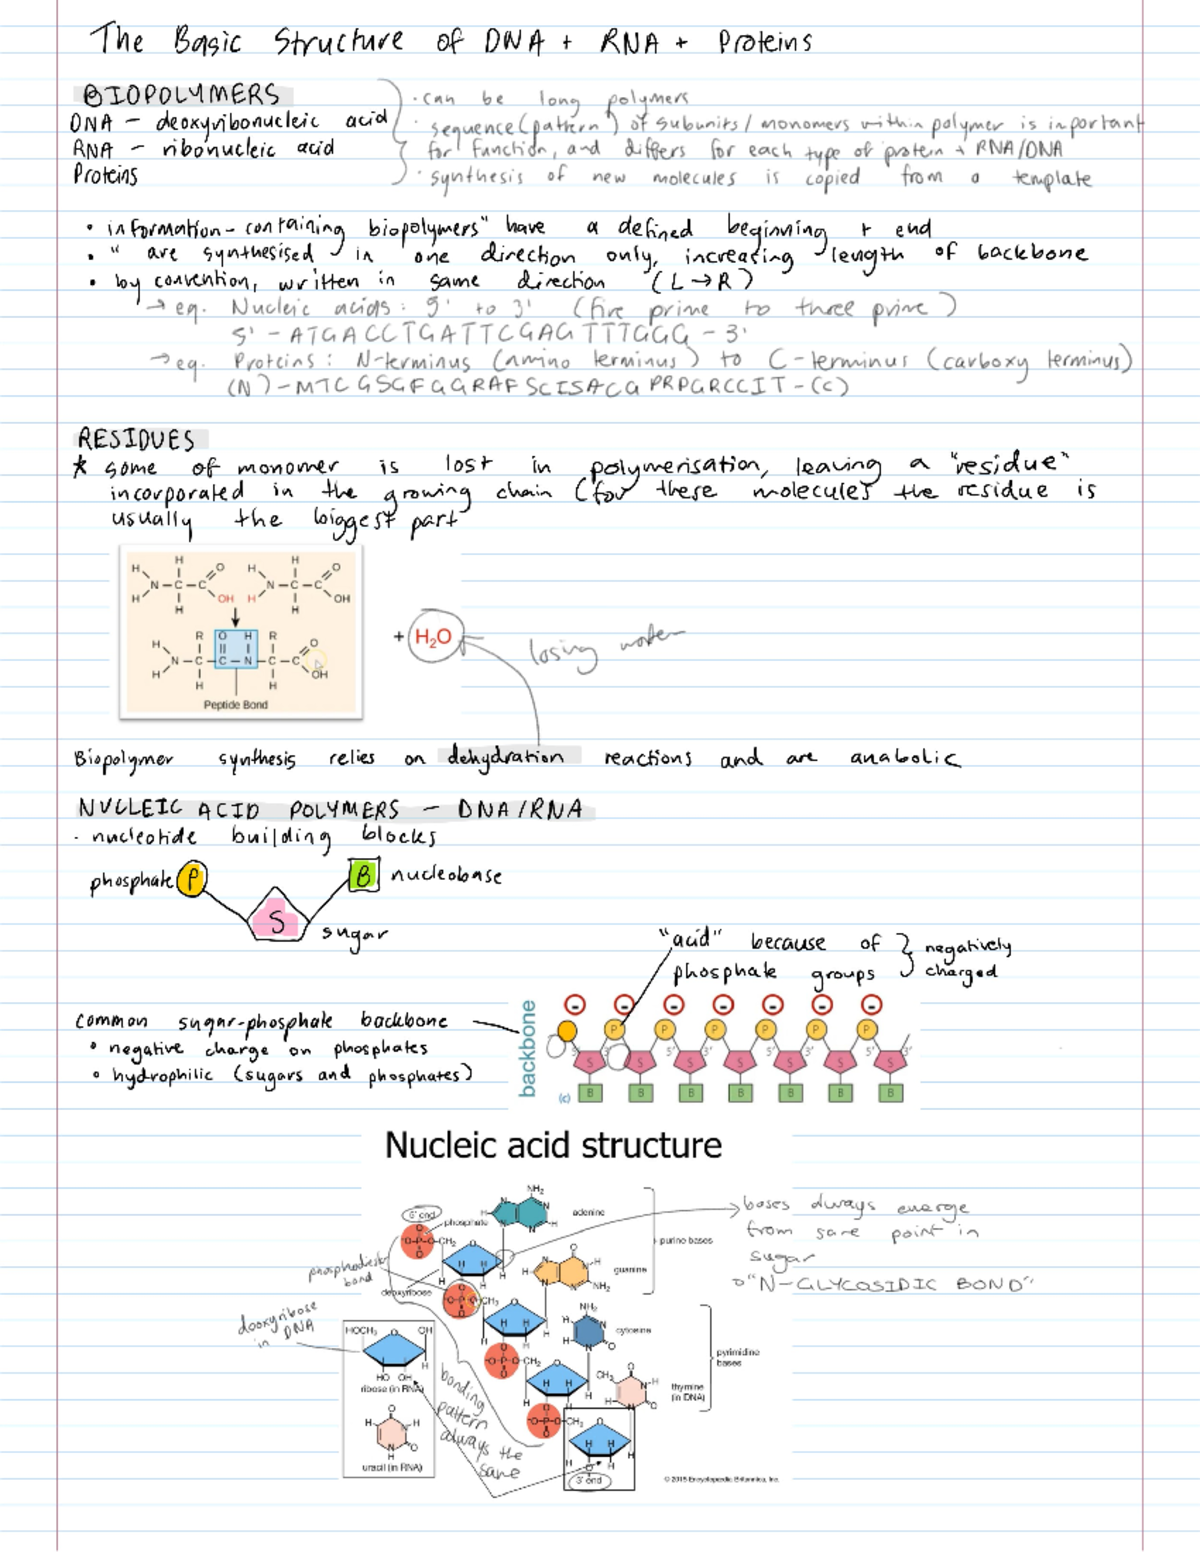 The Basic Structure of DNA + RNA + Proteins
BIOPOLYMERS
DNA - deoxyribonucleic acid
RNA - ribonucleic acid
Proteins
· can be long polymers
· sequence (pattern) of subunits / monomers within polymer is important
for function, and differs for each type of protein + RNA/DNA
· synthesis of new molecules is copied from a template
• information-containing biopolymers" have a defined beginning + end
• " are synthesised in one direction only, increasing length of backbone
• by convention, written in same direction (L→R)
→ eg. Nucleic acids: 5' to 3' (five prime to three prime)
5' - ATGACCTGATTCGAGTTTGGG - 3'
→ eg. Proteins: N-terminus (amino terminus) to C-terminus (carboxy terminus)
(N)-MTCGSGFGGRAFSCISACGPRPGRCCIT-(C)
RESIDUES
* some of monomer is lost in polymerisation, leaving a "residue"
incorporated in the growing chain (for these molecules the residue is
usually the biggest part
H H O H H O
N-C-C N-C-C
H H OH H H OH
H R O H R O
N-C-C-N-C-C
H H H OH
Peptide Bond
+ H₂O
losing water
Biopolymer synthesis relies on dehydration reactions and are anabolic
NUCLEIC ACID POLYMERS - DNA/RNA
· nucleotide building blocks
phosphate P B nucleobase
S sugar
"acid" because of } negatively
phosphate groups charged
Common sugar-phosphate backbone
• negative charge on phosphates
• hydrophilic (sugars and phosphates)
backbone
- - - - - - -
P P P P P P
5' 3' 5' 3' 5' 3'
S S S S S S S
(c) B B B B B B B
Nucleic acid structure
NH₂
adenine
5' end
phosphate
O-P-O-CH₂
purine bases
guanine
NH₂
phosphodiester
bond
deoxyribose
O-P-O-CH₂
NH₂
cytosine
pyrimidine
bases
O-P-O-CH₂
CH₃
thymine
(in DNA)
O-P-O-CH₂
3' end
deoxyribose
in DNA
HOCH₂ O OH
HO OH
ribose (in RNA)
uracil (in RNA)
bonding
pattern
always the
same
→ bases always emerge
from same point in
sugar
"N-GLYCOSIDIC BOND"
© 2015 Encyclopædia Britannica, Inc.